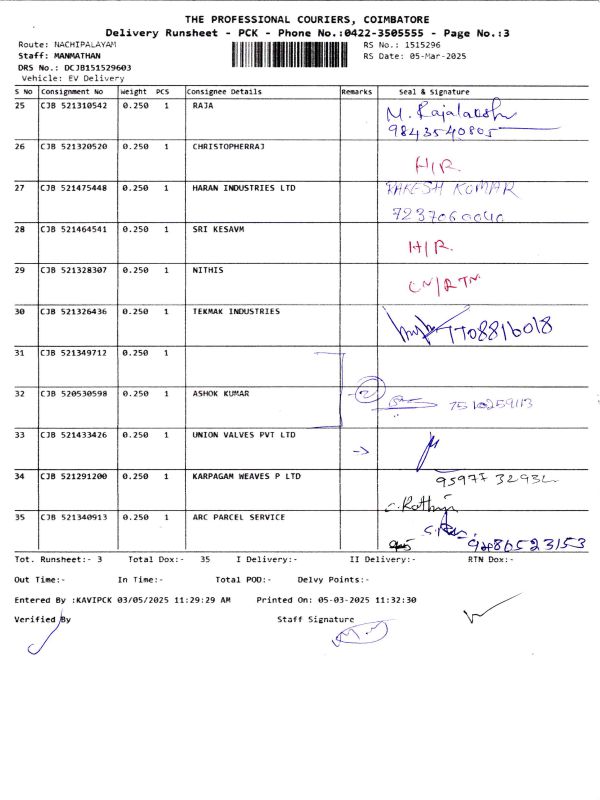 THE PROFESSIONAL COURIERS, COIMBATORE
Delivery Runsheet - PCK - Phone No.:0422-3505555 - Page No.:3
Route: NACHIPALAYAM RS No.: 1515296
Staff: MANMATHAN RS Date: 05-Mar-2025
DRS No.: DCJB151529603
Vehicle: EV Delivery
S No Consignment No Weight PCS Consignee Details Remarks Seal & Signature
25 CJB 521310542 0.250 1 RAJA M. Rajalaksh
9843540805
26 CJB 521320520 0.250 1 CHRISTOPHERRAJ
H/R.
27 CJB 521475448 0.250 1 HARAN INDUSTRIES LTD RAKESH KUMAR
7237060040
28 CJB 521464541 0.250 1 SRI KESAVM
H/R.
29 CJB 521328307 0.250 1 NITHIS
CN/RTN
30 CJB 521326436 0.250 1 TEKMAK INDUSTRIES
7708816018
31 CJB 521349712 0.250 1
32 CJB 520530598 0.250 1 ASHOK KUMAR 2
7510259113
33 CJB 521433426 0.250 1 UNION VALVES PVT LTD
34 CJB 521291200 0.250 1 KARPAGAM WEAVES P LTD
95977 32932
35 CJB 521340913 0.250 1 ARC PARCEL SERVICE
9486523153
Tot. Runsheet:- 3 Total Dox:- 35 I Delivery:- II Delivery:- RTN Dox:-
Out Time:- In Time:- Total POD:- Delvy Points:-
Entered By :KAVIPCK 03/05/2025 11:29:29 AM Printed On: 05-03-2025 11:32:30
Verified By Staff Signature